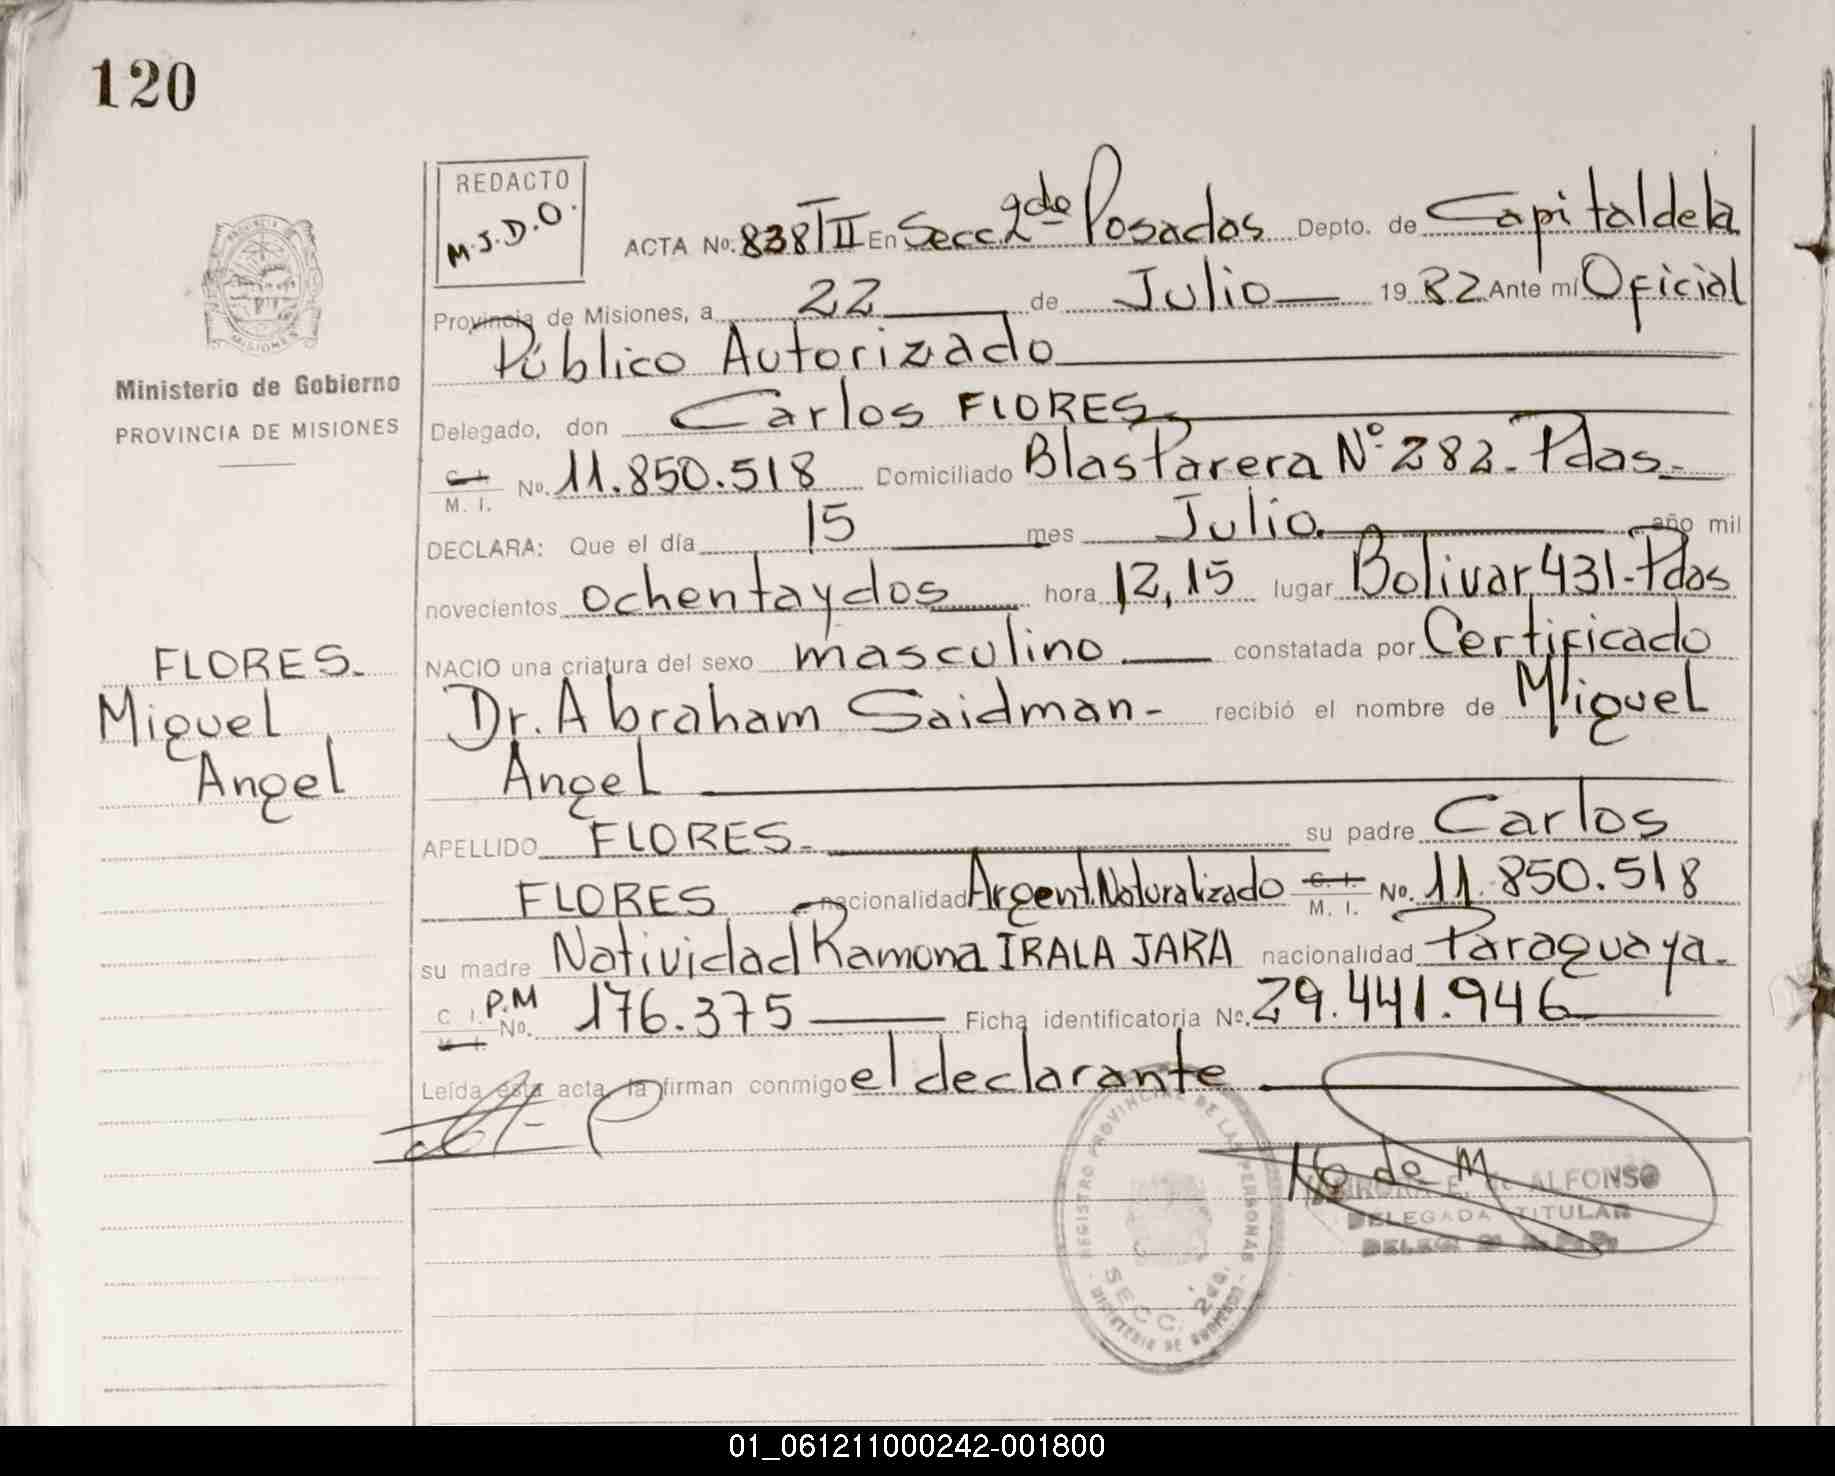 120
REDACTO
M.J.D.O.
ACTA No. 838 T II En Secc 2da Posadas Depto. de Capital de la
Provincia de Misiones, a 22 de Julio 19 82 Ante mí Oficial
Público Autorizado
Ministerio de Gobierno
PROVINCIA DE MISIONES
Delegado, don Carlos FLORES
C. I.
M. I. No. 11.850.518 Domiciliado Blas Parera Nº 282 - Pdas -
DECLARA: Que el día 15 mes Julio. año mil
novecientos ochenta y dos hora 12,15 lugar Bolivar 431 - Pdas
NACIO una criatura del sexo masculino constatada por Certificado
Dr. Abraham Saidman - recibió el nombre de Miguel
Angel
FLORES -
Miguel
Angel
APELLIDO FLORES - su padre Carlos
FLORES nacionalidad Argent. Naturalizado C. I. M. I. No. 11.850.518
su madre Natividad Ramona IRALA JARA nacionalidad Paraguaya -
C. I. P.M No. 176.375 Ficha identificatoria No. 29.441.946
Leída esta acta la firman conmigo el declarante
REGISTRO PROVINCIAL DE LAS PERSONAS
SECC. 2da.
MINISTERIO DE GOBIERNO
ALFONSO
DELEGADA TITULAR
01_061211000242-001800